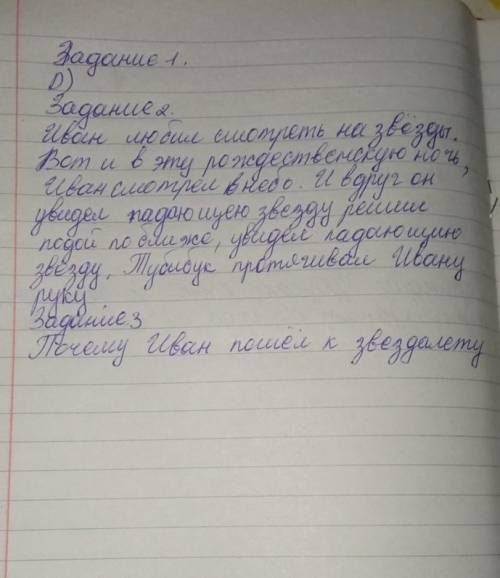 Задание 1.
D)
Задание 2.
Иван любил смотреть на звёзды.
Вот и в эту рождественскую ночь,
Иван смотрел в небо. И вдруг он
увидел падающею звезду решил
подой по ближе, увидел падающию
звезду. Тубибук протягивал Ивану
руку
Задание 3
Почему Иван пошёл к звездалету